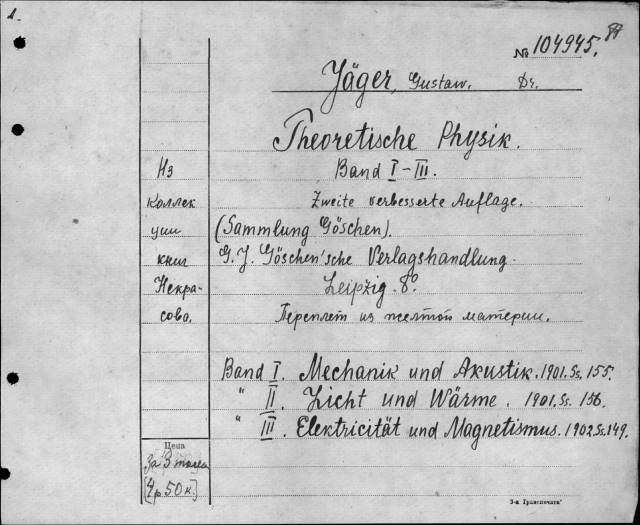 1.
84
№ 104945.
Jäger, Gustaw. Dr.
Theoretische Physik.
Band I-III.
Zweite verbesserte Auflage.
(Sammlung Göschen).
G. J. Göschen'sche Verlagshandlung.
Leipzig. 8º
Переплет из желтой материи.
Из
коллек
ции
книг
Некра-
сова.
Band I. Mechanik und Akustik. 1901. Ss. 155.
" II. Licht und Wärme. 1901. Ss. 156.
" III. Elektricität und Magnetismus. 1902. Ss. 149.
Цена
За 3 тома
[4р 50 к.]
3-я Гранспечати"